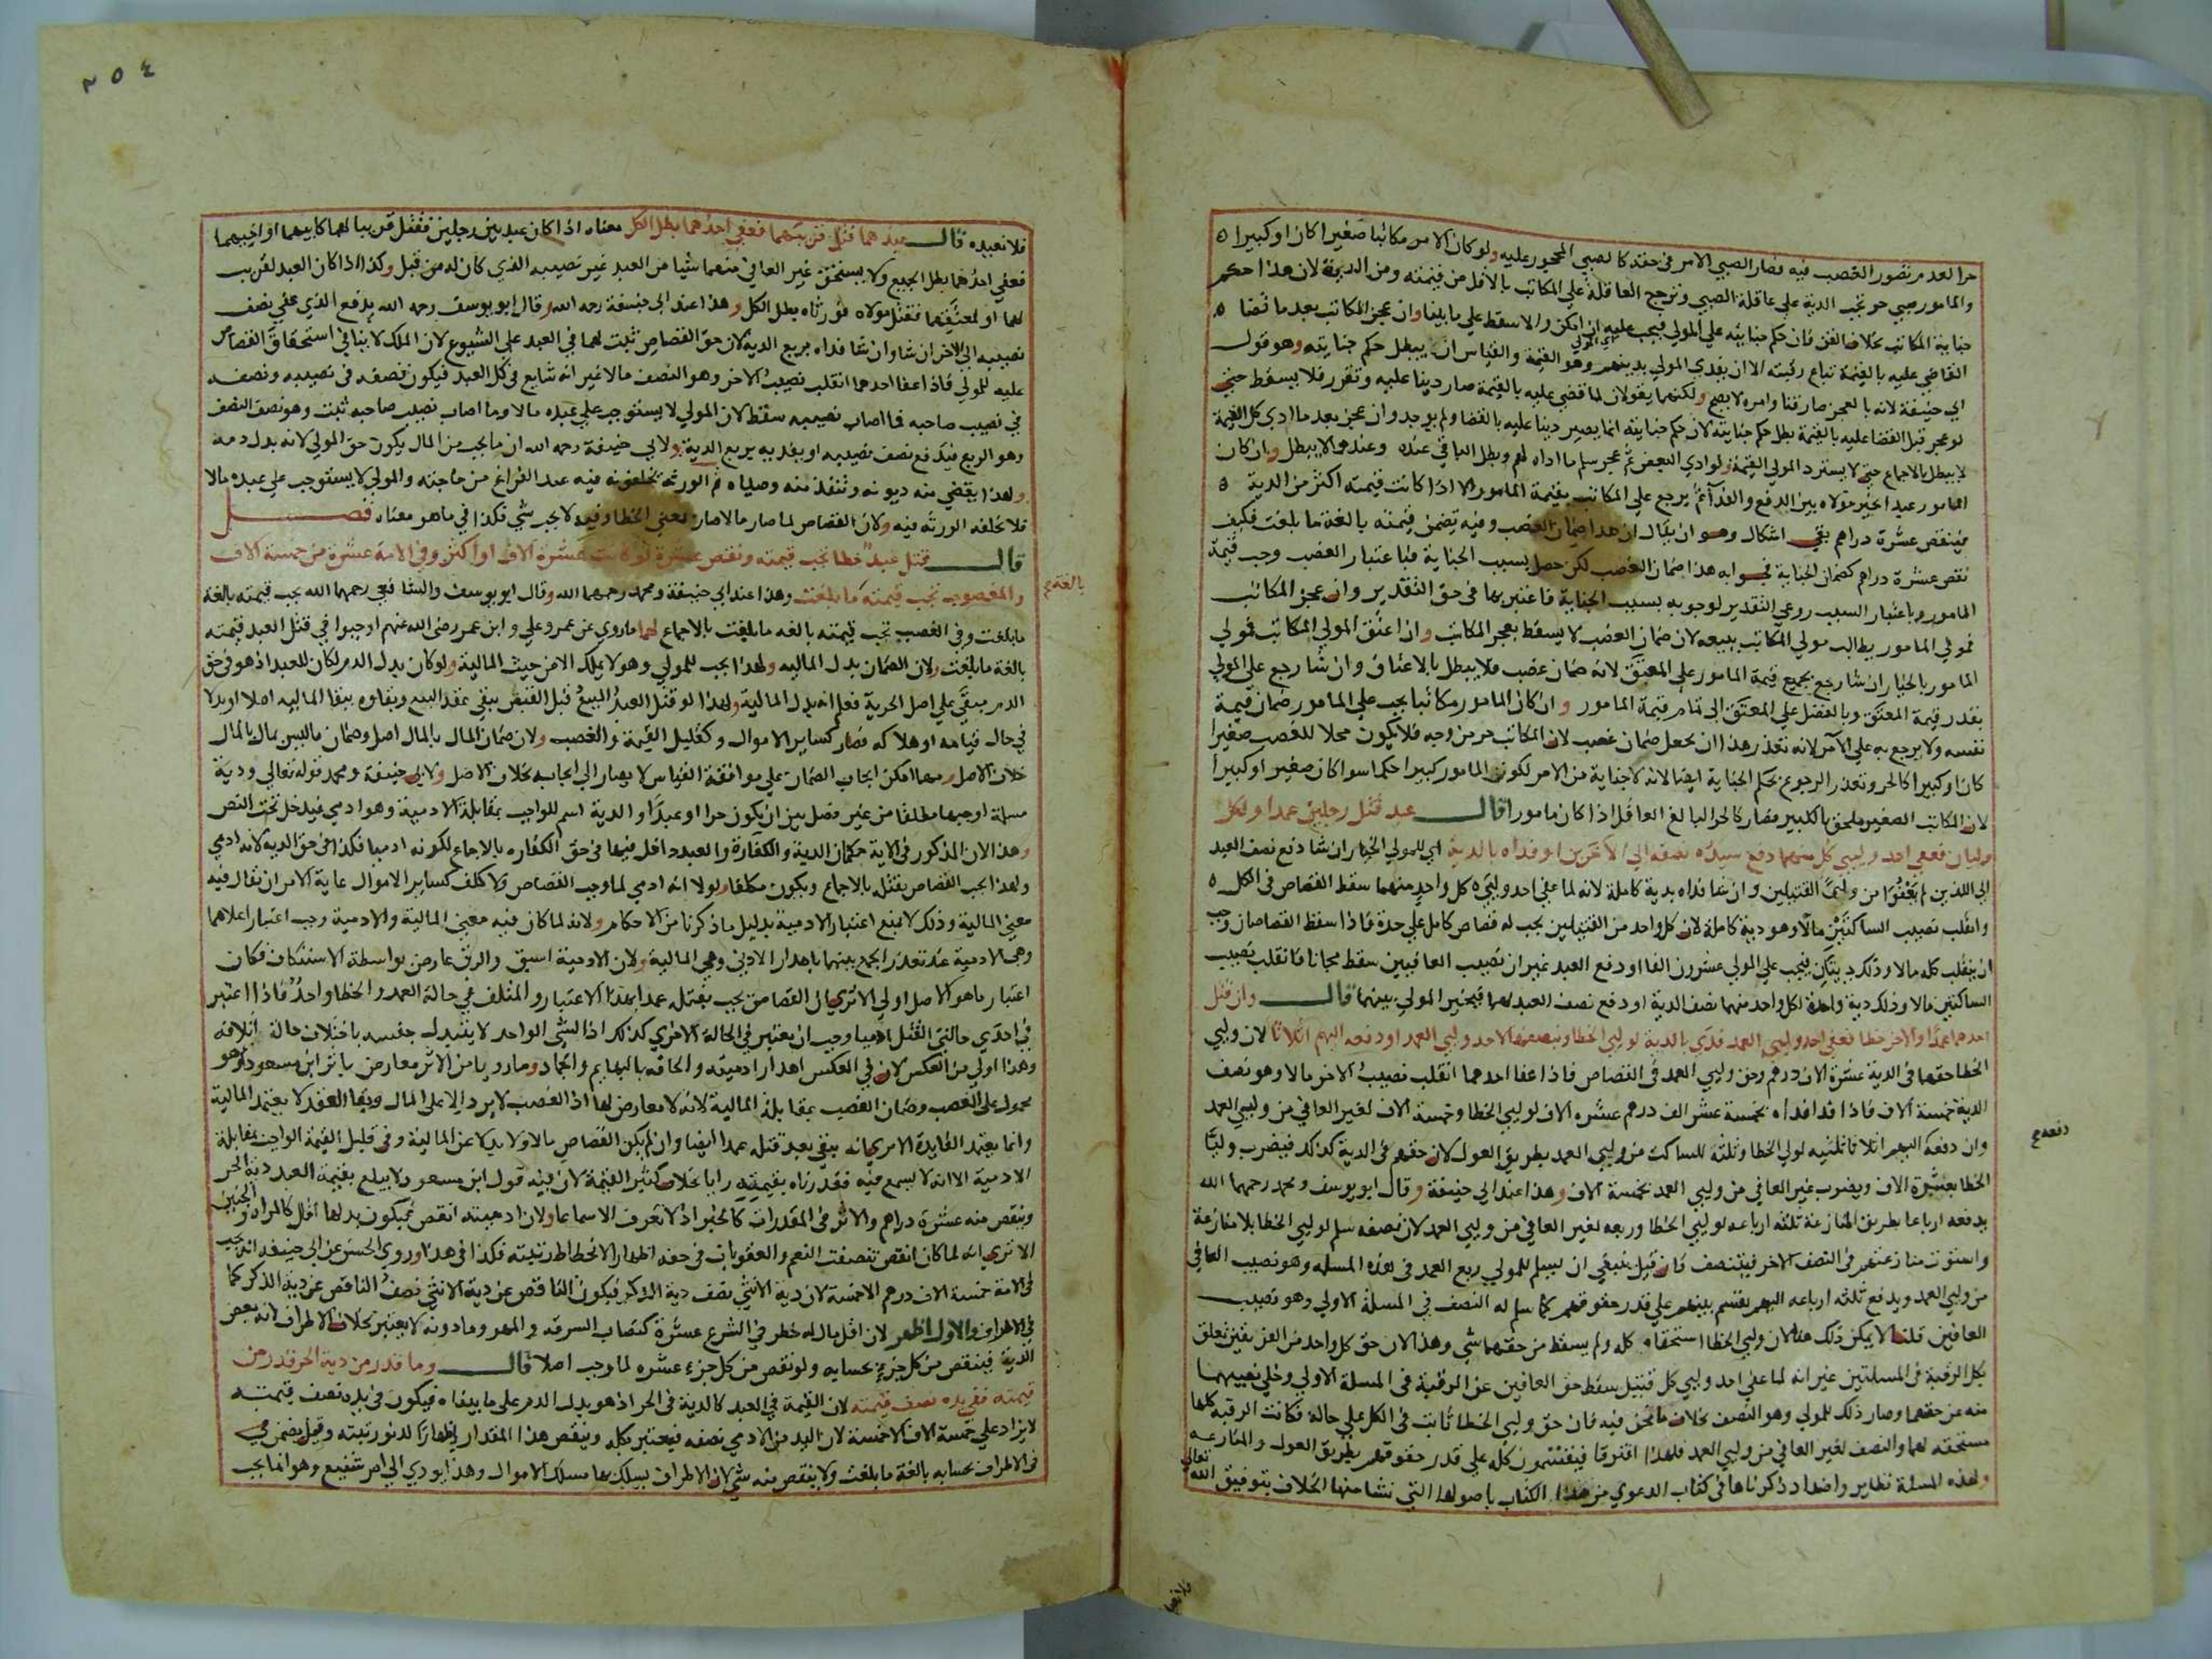 حرا لعدم تصور الغصب فيه فصار الصبي الامر في حقه كالصبي المحجور عليه ولو كان الامر مكاتبا صغيرا كان او كبيرا
والمامور صبي حر تجب الدية على عاقلة الصبي وترجع العاقلة على المكاتب بالاقل من قيمته ومن الدية لان هذا حكم
جناية المكاتب بخلاف القن فان حكم جنايته على المولى فيجب عليه ان امكن والا سقط على ما بينا وان عجز المكاتب بعد ما قضا
القاضي عليه بالقيمة تباع رقبته الا ان يفدي المولى بدينهم وهو القيمة والقياس ان يبطل حكم جنايته وهو قول
ابي حنيفة لانه بالعجز صار قنا وامره لا يصح ولكنهما يقولان لما قضى عليه بالقيمة صار دينا عليه وتقرر فلا يسقط حتى
لو عجز قبل القضا عليه بالقيمة بطل حكم جنايته لان حكم جنايته انما يصير دينا عليه بالقضا ولم يوجد وان عجز بعد ما ادى كل القيمة
لا يبطل بالاجماع حتى لا يسترد المولى القيمة ولو ادى البعض ثم عجز سلم ما اداه لهم وبطل الباقي عنده وعندهما لا يبطل وان كان
المامور عبدا خير مولاه بين الدفع والفدا ثم يرجع على المكاتب بقيمة المامور الا اذا كانت قيمته اكثر من الدية
فينقص عشرة دراهم بقي اشكال وهو ان يقال ان هذا ضمان الغصب وفيه تضمن قيمته بالغة ما بلغت فكيف
نقص عشرة دراهم كضمان الجناية فجوابه هذا ضمان الغصب لكن حصل بسبب الجناية فبا عتبار الغصب وجب قيمة
المامور وباعتبار السبب روعي التقدير لوجوبه بسبب الجناية فاعتبر بها في حق التقدير وان عجز المكاتب
فمولى المامور يطالب مولى المكاتب ببيعه لان ضمان الغصب لا يسقط بعجز المكاتب وان اعتق المولى المكاتب فمولى
المامور بالخيار ان شا رجع بجميع قيمة المامور على المعتق لانه ضمان غصب فلا يبطل بالاعتاق وان شا رجع على المولى
بقدر قيمة المعتق وبالفضل على المعتق الى تمام قيمة المامور وان كان المامور مكاتبا يجب على المامور ضمان قيمة
نفسه ولا يرجع به على الآمر لانه تعذر هذا ان يجعل ضمان غصب لان المكاتب حر من وجه فلا يكون محلا للغصب صغيرا
كان او كبيرا كالحر وتعذر الرجوع بحكم الجناية ايضا لانه لا جناية من الامر لكون المامور كبيرا حكما سوا كان صغيرا او كبيرا
لان المكاتب الصغير ملحق بالكبير فصار كالحر البالغ العاقل اذا كان مامورا قال عبد قتل رجلين عمدا ولكل
وليان فعفى احد وليي كل منهما دفع سيده نصفه الى الآخرين او فداه بالدية اي للمولى الخيار ان شا دفع نصف العبد
الى اللذين لم يعفوا من وليي القتيلين وان شا فداه بدية كاملة لانه لما عفى احد وليي كل واحد منهما سقط القصاص في الكل
وانقلب نصيب الساكتين مالا وهو دية كاملة لان كل واحد من القتيلين يجب له قصاص كامل على حدة فاذا سقط القصاصان وجب
ان ينقلب كله مالا وذلك ديتان فيجب على المولى عشرون الفا او دفع العبد غير ان نصيب العافيين سقط مجانا فانقلب نصيب
الساكتين مالا وذلك دية واحدة لكل واحد منهما نصف الدية او دفع نصف العبد لهما فيخير المولى بينهما قال وان قتل
احدهما عمدا والاخر خطا فعفى احد وليي العمد فدى بالدية لوليي الخطا وبنصفها لاحد وليي العمد او دفعه اليهم اثلاثا لان وليي
الخطا حقهما في الدية عشرة الاف درهم وحق وليي العمد في القصاص فاذا عفا احدهما انقلب نصيب الاخر مالا وهو نصف
الدية خمسة الاف فاذا فداه فداه بخمسة عشر الف درهم عشره الاف لوليي الخطا وخمسة الاف لغير العافي من وليي العمد
وان دفعه دفعه اليهم اثلاثا ثلثيه لولي الخطا وثلثه للساكت من وليي العمد بطريق العول لان حقهم في الدية كذلك فيضرب وليا
الخطا بعشرة الاف ويضرب غير العافي من وليي العمد بخمسة الاف وهذا عند ابي حنيفة وقال ابو يوسف ومحمد رحمهما الله
يدفعه ارباعا بطريق المنازعة ثلثة ارباعه لوليي الخطا وربعه لغير العافي من وليي العمد لان نصفه سلم لوليي الخطا بلا منازعة
واستوت منازعتهم في النصف الاخر فيتنصف فان قيل ينبغي ان يسلم للمولى ربع العبد في هذه المسلة وهو نصيب العافي
من وليي العمد ويدفع ثلثه ارباعه اليهم يقسم بينهم على قدر حقوقهم كما سلم له النصف في المسلة الاولى وهو نصيب
العافيين قلنا لا يمكن ذلك هنا لان وليي الخطا استحقاه كله ولم يسقط من حقهما شي وهذا لان حق كل واحد من الفريقين تعلق
بكل الرقبة في المسلتين غير انه لما عفى احد وليي كل قتيل سقط حق العافيين عن الرقبة في المسلة الاولى وخلى نصيبهما
منه عن حقهما وصار ذلك للمولى وهو النصف بخلاف ما نحن فيه فان حق وليي الخطا ثابت في الكل على حاله فكانت الرقبة كلها
مستحقة لهما والنصف لغير العافي من وليي العمد فلهذا افترقا فيقتسمون كله على قدر حقوقهم بطريق العول والمنازعه
ولهذه المسلة نظاير واضداد ذكرناها في كتاب الدعوى من هذا الكتاب باصولها التي نشا منها الخلاف بتوفيق الله تعالى
دفعه
٢٥٤
فلا نعيده قال عبدهما قتل قريبهما فعفى احدهما بطل الكل معناه اذا كان عبد بين رجلين فقتل قريبا لهما كابيهما او اخيهما
فعفى احدهما بطل الجميع ولا يستحق غير العافي منهما شيا من العبد غير نصيبه الذي كان له من قبل وكذا اذا كان العبد لقريب
لهما او لمعتقهما فقتل مولاه فورثاه بطل الكل وهذا عند ابي حنيفة رحمه الله وقال ابو يوسف رحمه الله يدفع الذي عفى نصف
نصيبه الى الاخر ان شا وان شا فداه بربع الدية لان حق القصاص ثبت لهما في العبد على الشيوع لان الملك لا ينافي استحقاق القصاص
عليه للمولى فاذا عفا احدهما انقلب نصيب الاخر وهو النصف مالا غير انه شايع في كل العبد فيكون نصفه في نصيبه ونصفه
في نصيب صاحبه فما اصاب نصيبه سقط لان المولى لا يستوجب على عبده مالا وما اصاب نصيب صاحبه ثبت وهو نصف النصف
وهو الربع فيدفع نصف نصيبه او يفديه بربع الدية ولابي حنيفة رحمه الله ان ما يجب من المال يكون حق المولى لانه بدل دمه
ولهذا يقضي منه ديونه وتنفذ منه وصاياه ثم الورثة تخلفونه فيه عند الفراغ من حاجته والمولى لا يستوجب على عبده مالا
فلا تخلفه الورثه فيه ولان القصاص لما صار مالا صار بمعنى الخطا وفيه لا يجب شي فكذا في ما هو معناه فصل
قال قتل عبد خطا تجب قيمته ونقص عشرة لو كانت عشرة الاف او اكثر وفي الامة عشرة من خمسة الاف
والمغصوب تجب قيمته ما بلغت وهذا عند ابي حنيفة ومحمد رحمهما الله وقال ابو يوسف والشافعي رحمهما الله تجب قيمته بالغة
ما بلغت وفي الغصب تجب قيمته بالغه ما بلغت بالاجماع لهما ما روي عن عمر وعلي وابن عمر رضي الله عنهم اوجبوا في قتل العبد قيمته
بالغة ما بلغت ولان الضمان بدل الماليه ولهذا يجب للمولى وهو لا يملك الا من حيث المالية ولو كان بدل الدم لكان للعبد اذ هو في حق
الدم مبقى على اصل الحرية فعلم انه بدل المالية ولهذا لو قتل العبد المبيع قبل القبض يبقى عقد البيع وبقاوه ببقا الماليه اصلا او بدلا
في حال قيامه او هلاكه فصار كساير الاموال وكقليل القيمة والغصب ولان ضمان المال بالمال اصل وضمان ماليس بمال بالمال
خلاف الاصل ومهما امكن ايجاب الضمان على موافقة القياس لا يصار الى ايجابه بخلاف الاصل ولابي حنيفة ومحمد قوله تعالى ودية
مسلمة اوجبها مطلقا من غير فصل بين ان يكون حرا او عبدا والدية اسم للواجب بمقابلة الادمية وهو ادمي فيدخل تحت النص
وهذا لان المذكور في الاية حكمان الدية والكفارة والعبد داخل فيها في حق الكفاره بالاجماع لكونه ادميا فكذا في حق الدية لانه ادمي
ولهذا يجب القصاص بقتله بالاجماع ويكون مكلفا ولولا انه ادمي لما وجب القصاص ولا كلف كساير الاموال غاية الامر ان يقال فيه
معنى المالية وذلك لا يمنع اعتبار الادمية بدليل ما ذكرنا من الاحكام ولانه لما كان فيه معنى المالية والادمية وجب اعتبار اعلاهما
وهي الادمية عند تعذر الجمع بينهما باهدار الادنى وهي المالية ولان الادمية اسبق والرق عارض بواسطة الاستنكاف فكان
اعتبار ما هو الاصل اولى الا ترى ان القصاص يجب بقتله عمدا بهذا الاعتبار والمتلف في حالة العمد والخطا واحد فاذا اعتبر
في احدى حالتي القتل ادميا وجب ان يعتبر في الحالة الاخرى كذلك اذ الشي الواحد لا يتبدل جنسه باختلاف حالة اتلافه
وهذا اولى من العكس لان في العكس اهدار ادميته والحاقه بالبهايم والجماد وما رويا من الاثر معارض باثر ابن مسعود او هو
محمول على الغصب وضمان الغصب بمقابلة المالية لانه لا معارض لها اذ الغصب لا يرد الا على المال وبقا العقد لا يعتمد المالية
وانما يعتمد الفايدة الا ترى انه يبقى بعد قتله عمدا ايضا وان لم يكن القصاص مالا ولا بدلا عن المالية وفي قليل القيمة الواجب بمقابلة
الادمية الا انه لا يسمع فيه فقدرناه بقيمته رايا بخلاف كثير القيمة لان فيه قول ابن مسعود ولا يبلغ بقيمة العبد دية الحر
وينقص منه عشرة دراهم والاثر في المقدرات كالخبر اذ لا تعرف الا سماعا ولان ادميته انقص فيكون بدلها اقل كالمراة والجنين
الا ترى انه لما كان انقص تنصفت النعم والعقوبات في حقه اظهارا لانحطاط رتبته فكذا في هذا وروى الحسن عن ابي حنيفة انه يجب
في الامة خمسة الاف درهم الا خمسة لان دية الانثى نصف دية الذكر فيكون الناقص عن دية الانثى نصف الناقص عن دية الذكر كما
في الاطراف والاول اظهر لان اقل مال له خطر في الشرع عشرة كنصاب السرقه والمهر وما دونه لا يعتبر بخلاف الاطراف لانه بعض
الدية فينقص من كل جزء بحسابه ولو نقص من كل جزء عشره لما وجب اصلا قال وما قدر من دية الحر قدر من
قيمته ففي يده نصف قيمته لان القيمة في العبد كالدية في الحر اذ هو بدل الدم على ما بيناه فيكون في يده نصف قيمته
لا يزاد على خمسة الاف الا خمسة لان اليد من الادمي نصفه فيعتبر بكله وينقص هذا المقدار اظهارا لدنو رتبته وقيل يضمن
في الاطراف بحسابه بالغة ما بلغت ولا ينقص منه شي لان الاطراف يسلك بها مسلك الاموال وهذا يودي الى امر شنيع وهو انما يجب